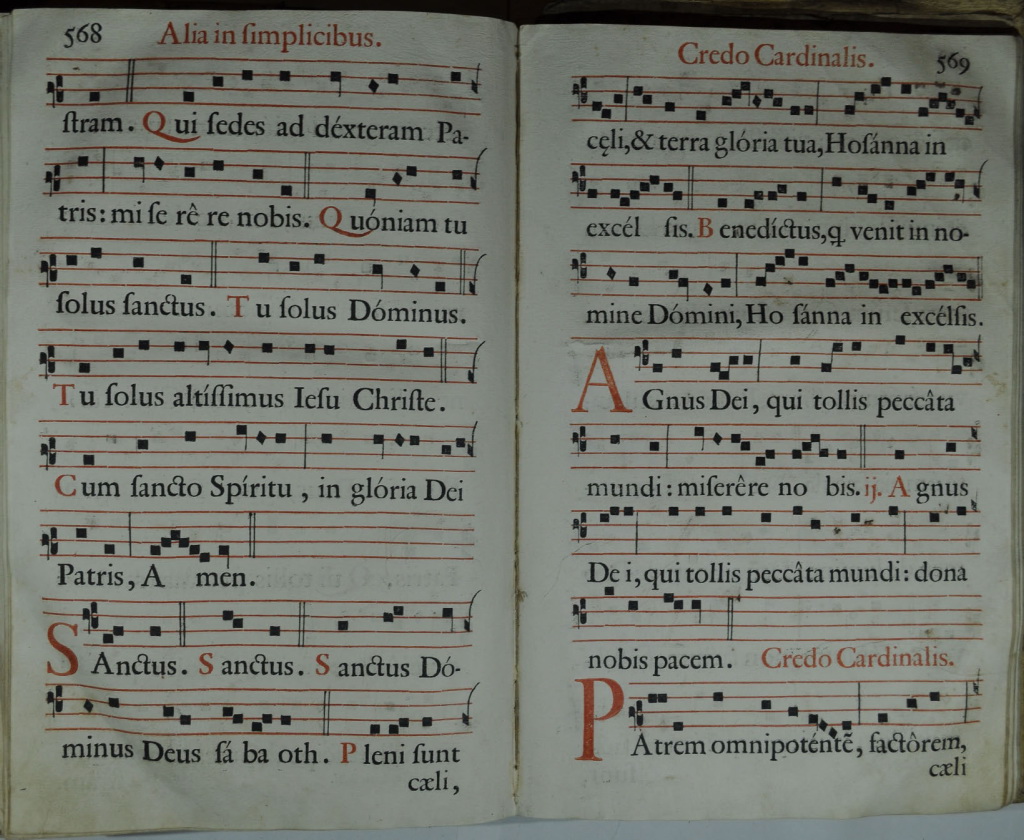 568 Alia in ſimplicibus.
ſtram. Qui ſedes ad déxteram Pa-
tris: mi ſe rê re nobis. Quóniam tu
ſolus ſanctus. Tu ſolus Dóminus.
Tu ſolus altíſſimus Ieſu Chriſte.
Cum ſancto Spíritu, in glória Dei
Patris, A men.
SAnctus. Sanctus. Sanctus Dó-
minus Deus ſá ba oth. Pleni ſunt
cæli,
Credo Cardinalis. 569
cęli, & terra glória tua, Hoſánna in
excél ſis. Benedíctus, q venit in no-
mine Dómini, Ho ſánna in excélſis.
AGnus Dei, qui tollis peccâta
mundi: miſerêre no bis. ij. Agnus
De i, qui tollis peccâta mundi: dona
nobis pacem. Credo Cardinalis.
PAtrem omnipoténtẽ, factôrem,
cæli